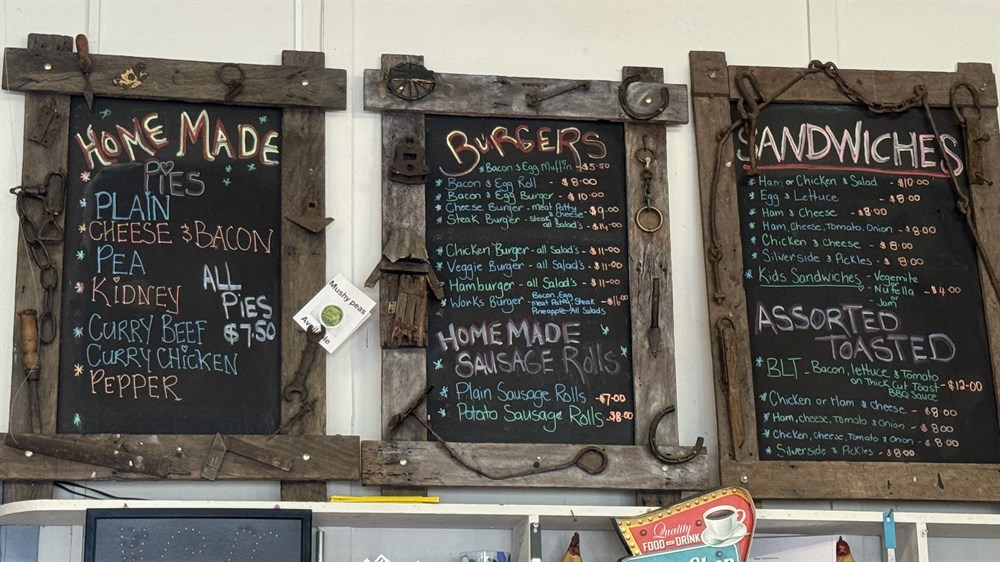 HOME MADE
PIES
PLAIN
CHEESE & BACON
PEA
KIDNEY
CURRY BEEF
CURRY CHICKEN
PEPPER
ALL
PIES
$7.50
Mushy peas
Available
BURGERS
Bacon & Egg Muffin - $5.50
Bacon & Egg Roll - $8.00
Bacon & Egg Burger - $10.00
Cheese Burger - meat Patty & cheese - $9.00
Steak Burger - steak all Salad's - $14.00
Chicken Burger - all Salad's - $11.00
Veggie Burger - all Salad's - $11.00
Hamburger - all Salad's - $11.00
Works Burger Bacon, Egg
meat Patty, Steak
Pineapple - All Salads
HOMEMADE
SAUSAGE Rolls
Plain Sausage Rolls - $7.00
Potato Sausage Rolls - $8.00
SANDWICHES
Ham or Chicken & Salad - $10.00
Egg & Lettuce - $8.00
Ham & Cheese - $8.00
Ham, Cheese, Tomato, Onion - $8.00
Chicken & Cheese - $8.00
Silverside & Pickles - $8.00
Kids Sandwiches - Vegemite
or
Nutella
or
Jam
- $4.00
ASSORTED
TOASTED
BLT - Bacon, lettuce & Tomato
on Thick Cut Toast
BBQ Sauce
- $12.00
Chicken or Ham & cheese - $8.00
Ham, cheese, Tomato & Onion - $8.00
Chicken, Cheese, Tomato & Onion - $8.00
Silverside & Pickles - $8.00
Quality
FOOD AND DRINK
Shop